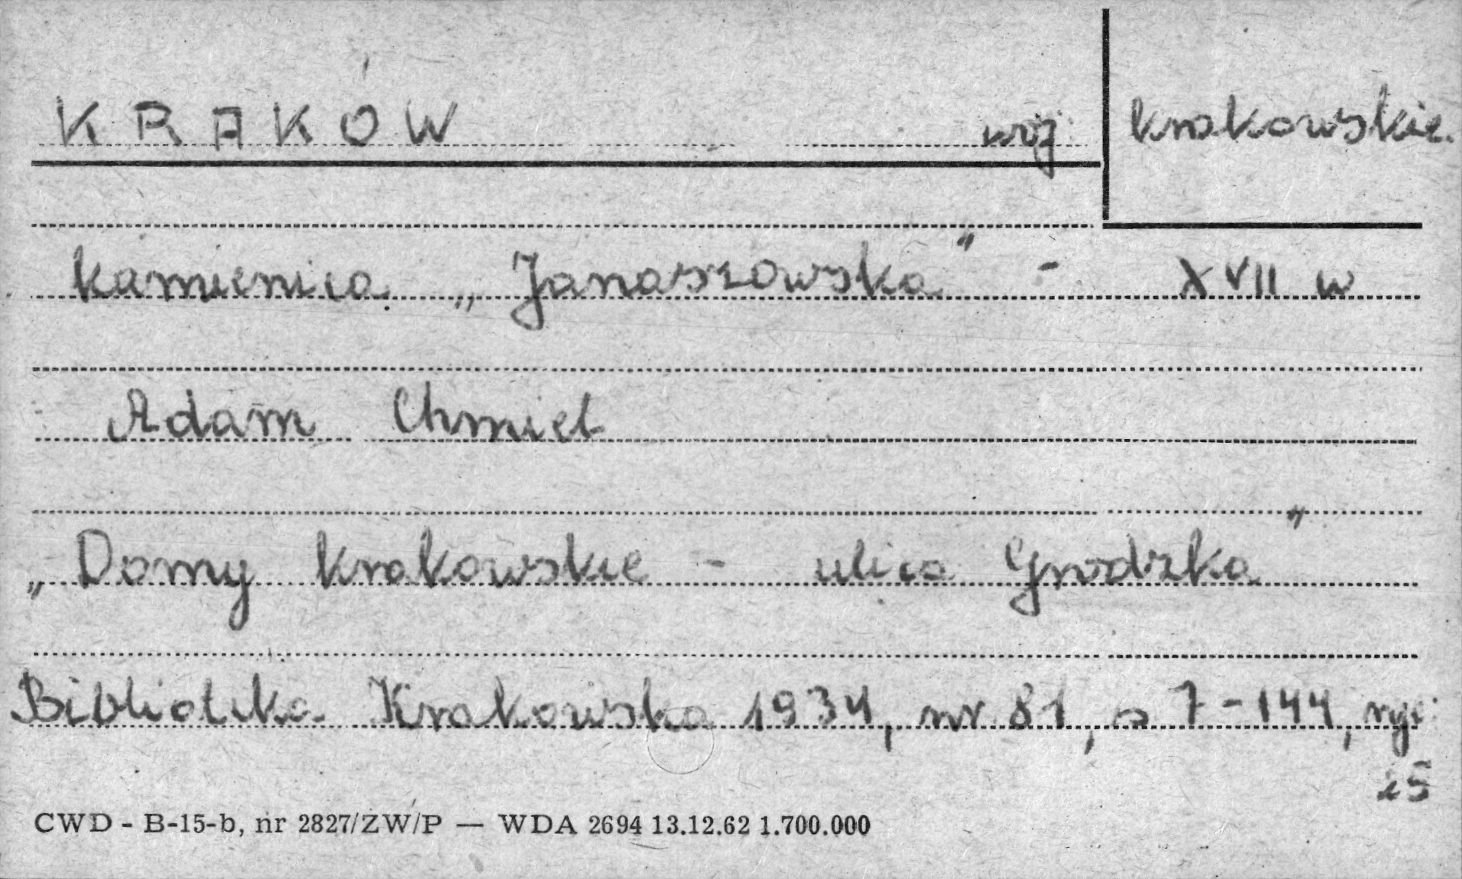 KRAKÓW woj. krakowskie.
kamienica „Janaszowska" - XVII w
Adam Chmiel
„Domy krakowskie - ulica Grodzka"
Biblioteka Krakowska 1934, nr 81, s 7-144, ryc.
25
CWD - B-15-b, nr 2827/ZW/P — WDA 2694 13.12.62 1.700.000